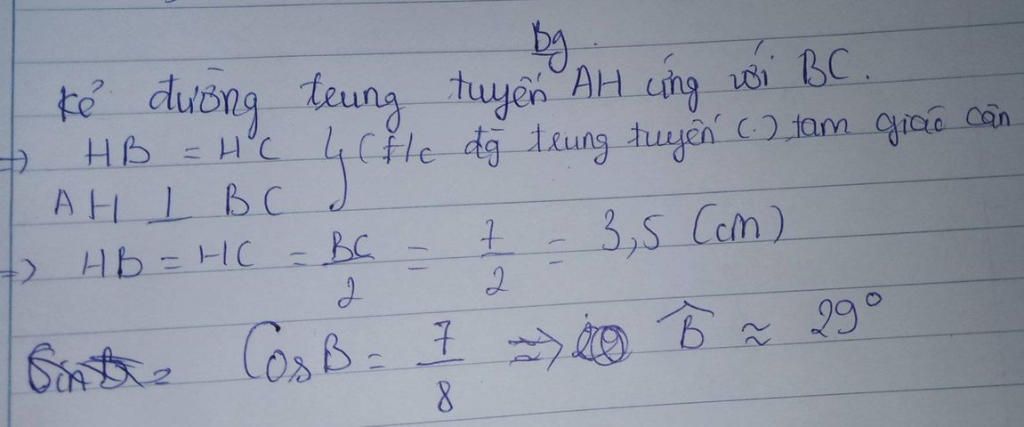 Bg.
Kẻ đường trung tuyến AH ứng với BC.
=> HB = HC } (t/c đg trung tuyến (.) tam giác cân
AH ⊥ BC
=> HB = HC = BC/2 = 7/2 = 3,5 (cm)
Cos B = 7/8 => B̂ ≈ 29°